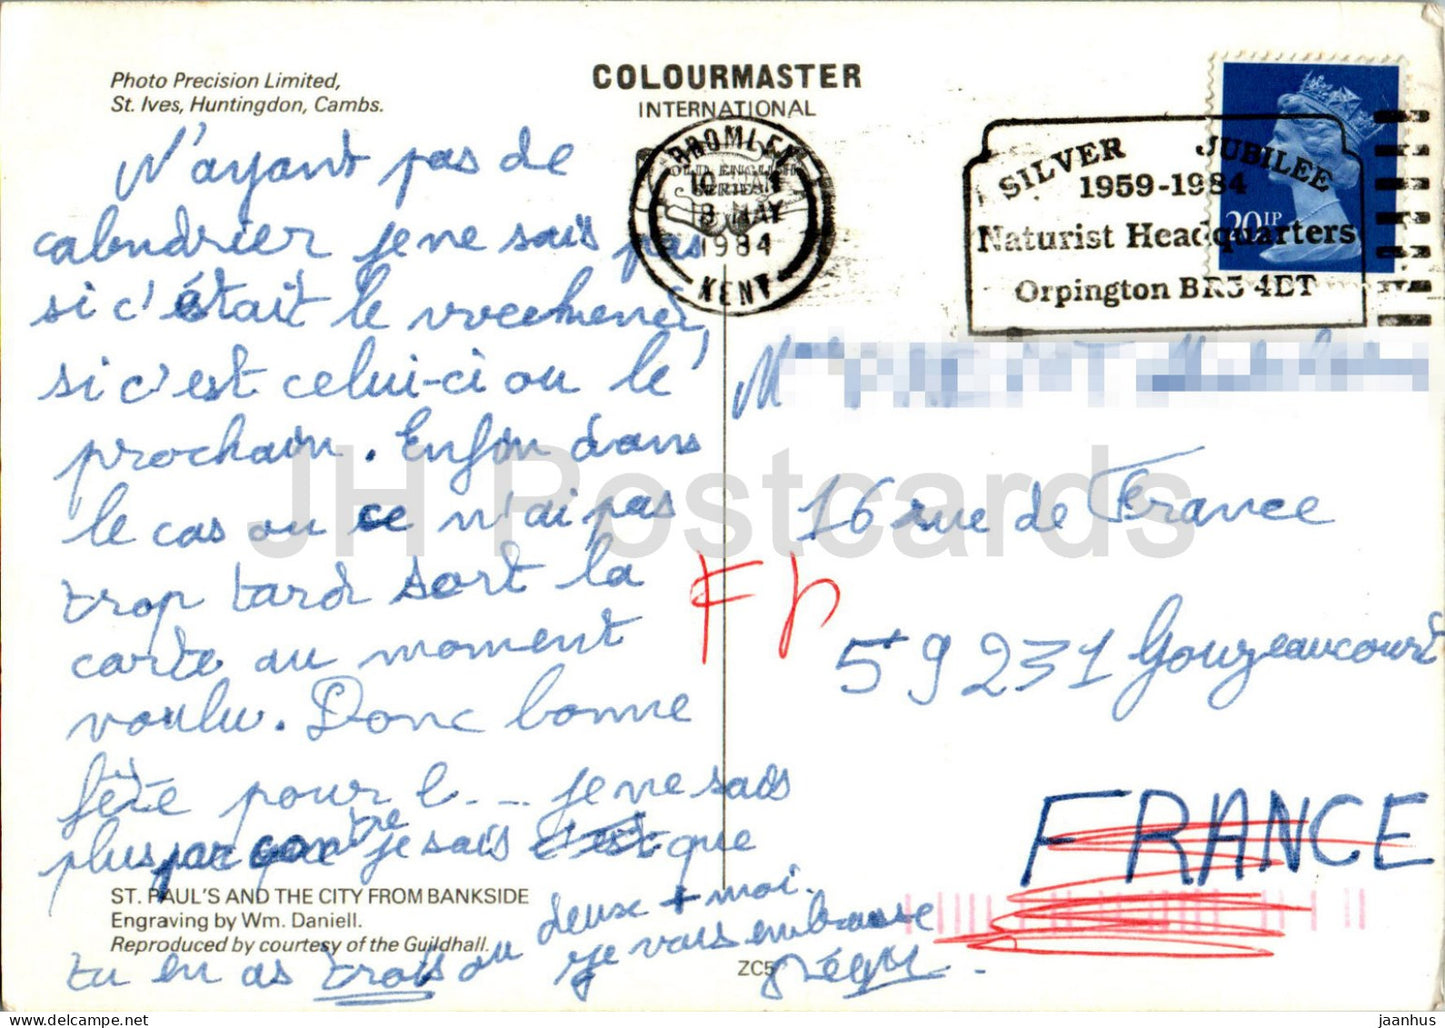 Photo Precision Limited,
St. Ives, Huntingdon, Cambs.
COLOURMASTER
INTERNATIONAL
OLD ENGLISH
SERIES
BROMLEY
8 MAY
1984
KENT
SILVER JUBILEE
1959-1984
Naturist Headquarters
Orpington BR5 4ET
20P
N'ayant pas de
calendrier je ne sais pas
si c'était le
si c'est celui-ci ou le
prochain. Enfin dans
le cas ou ce n'ai pas
trop tard sort la
carte au moment
voulu. Donc bonne
fête pour l... je ne sais
plus par contre je sais c'est que
tu en as trois ou deux + moi.
je vous embrasse
M
16 rue de France
59231 Gouzeaucourt
FRANCE
ST. PAUL'S AND THE CITY FROM BANKSIDE
Engraving by Wm. Daniell.
Reproduced by courtesy of the Guildhall.
ZC5
JH Postcards
jaanhus | delcampe.net